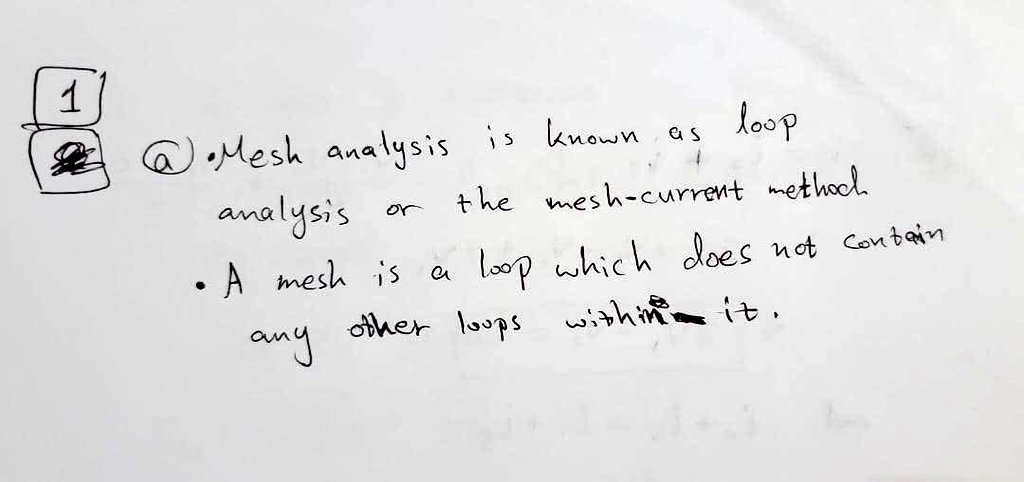 1
a) • Mesh analysis is known as loop
analysis or the mesh-current method
• A mesh is a loop which does not contain
any other loops within it.